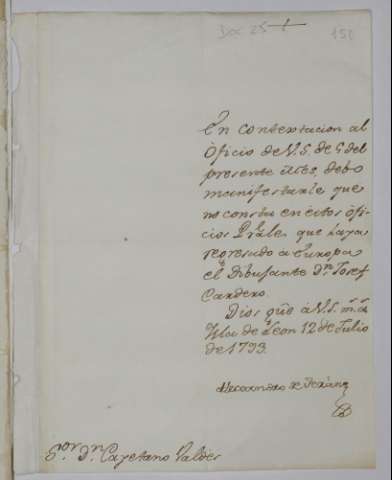 Doc 25
151
En contextacion al
Oficio de V.S. de 5 del
presente mes, debo
manifestarle que
no consta en estos ofi-
cios Prāles que haya
regresado a Europa
el Dibuxante Dn. Josef
Cardero.
Dios güe á V.S. m.s a.s
Isla de Leon 12 de Julio
de 1793.
Sor. Dn. Cayetano Valdes